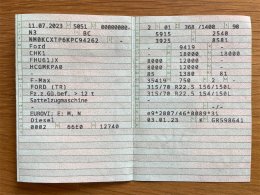 11.07.2023 5051 00000000-
N3 BC
NM0KCXTP6KPC94262 -
Ford
CHK1
FHU61JX
HCUMKPA0
F-Max
FORD (TR)
Fz.z.Gü.bef. > 12 t
Sattelzugmaschine
-
EUROVI; E; M, N
Diesel
0002 66E0 12740
2 01 368 /1400 90
5915 2540
3925 8581
- 9419 -
18000 - 18000
8000 12000 -
8000 12000 -
85 1380 81
35419 750 2 -
315/70 R22.5 156/150L
315/70 R22.5 154/150L
-
e9*2007/46*6089*31
03.01.23 K GR598641